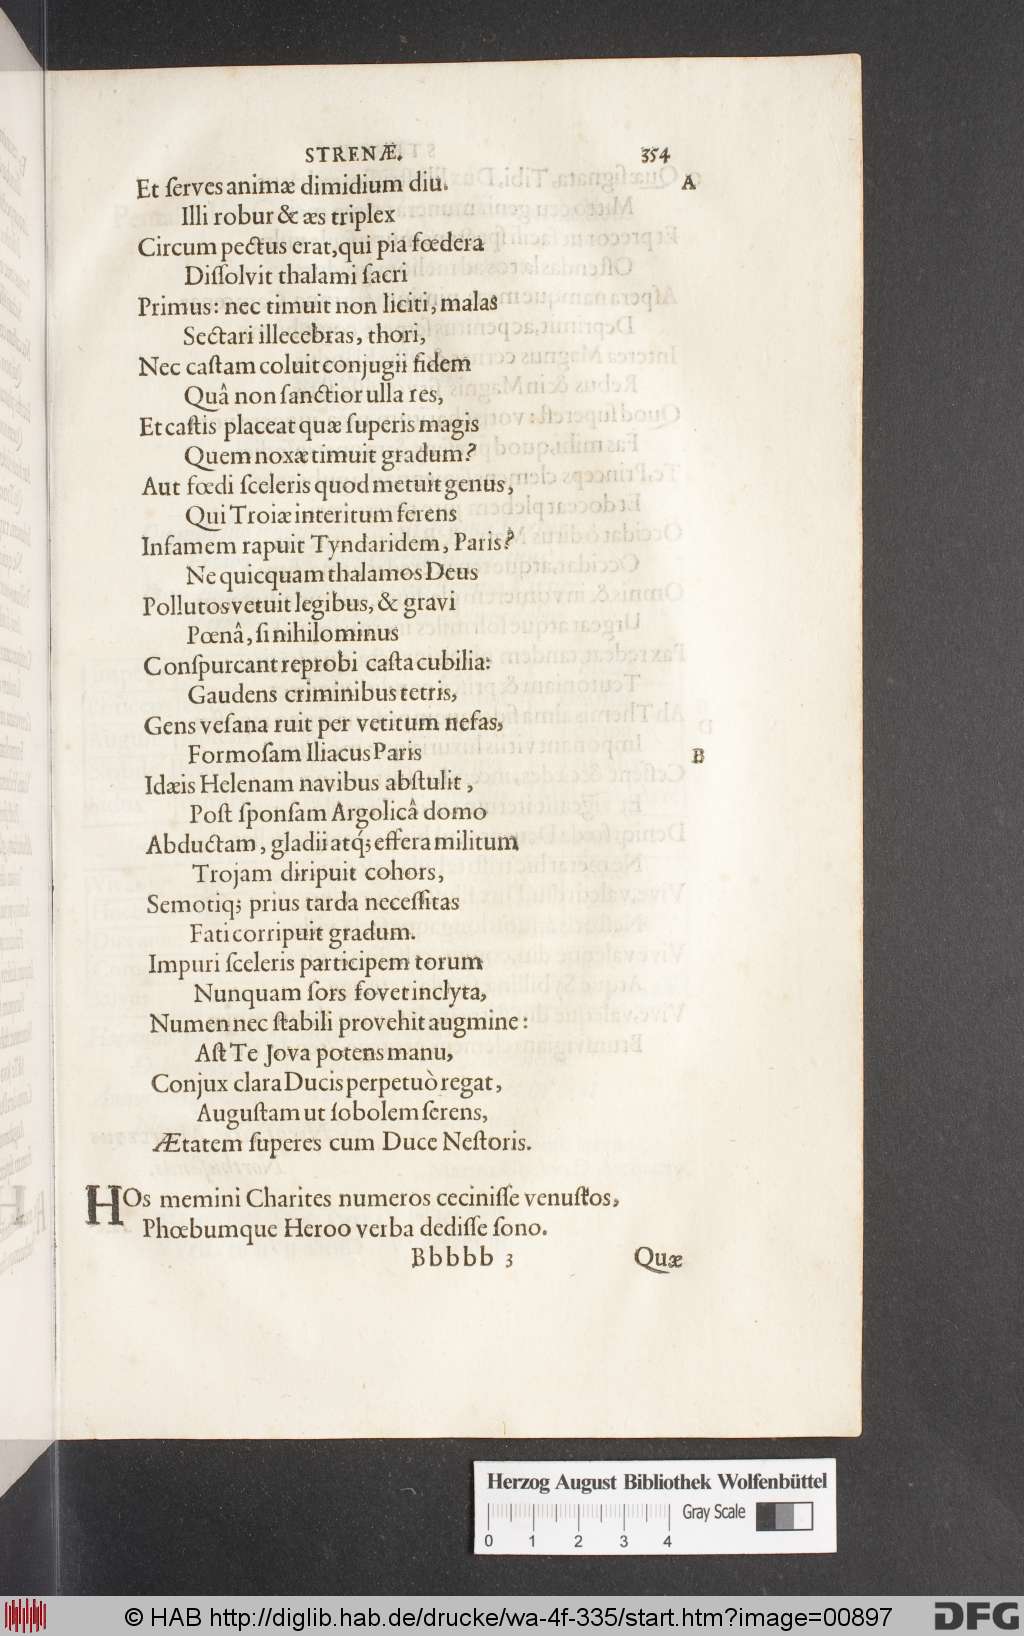 STRENÆ. 354
Et ſerves animæ dimidium diu. A
Illi robur & æs triplex
Circum pectus erat, qui pia fœdera
Diſſolvit thalami ſacri
Primus: nec timuit non liciti, malas
Sectari illecebras, thori,
Nec caſtam coluit conjugii fidem
Quâ non ſanctior ulla res,
Et caſtis placeat quæ ſuperis magis
Quem noxæ timuit gradum?
Aut fœdi ſceleris quod metuit genus,
Qui Troiæ interitum ferens
Infamem rapuit Tyndaridem, Paris?
Ne quicquam thalamos Deus
Pollutos vetuit legibus, & gravi
Pœnâ, ſi nihilominus
Conſpurcant reprobi caſta cubilia:
Gaudens criminibus tetris,
Gens veſana ruit per vetitum nefas,
Formoſam Iliacus Paris B
Idæis Helenam navibus abſtulit,
Poſt ſponſam Argolicâ domo
Abductam, gladii atq́; effera militum
Trojam diripuit cohors,
Semotiq; prius tarda neceſſitas
Fati corripuit gradum.
Impuri ſceleris participem torum
Nunquam ſors fovet inclyta,
Numen nec ſtabili provehit augmine:
Aſt Te Jova potens manu,
Conjux clara Ducis perpetuò regat,
Auguſtam ut ſobolem ſerens,
Ætatem ſuperes cum Duce Neſtoris.
HOs memini Charites numeros ceciniſſe venuſtos,
Phœbumque Heroo verba dediſſe ſono.
Bbbbb 3 Quæ
Herzog August Bibliothek Wolfenbüttel
Gray Scale
0 1 2 3 4
© HAB http://diglib.hab.de/drucke/wa-4f-335/start.htm?image=00897 DFG